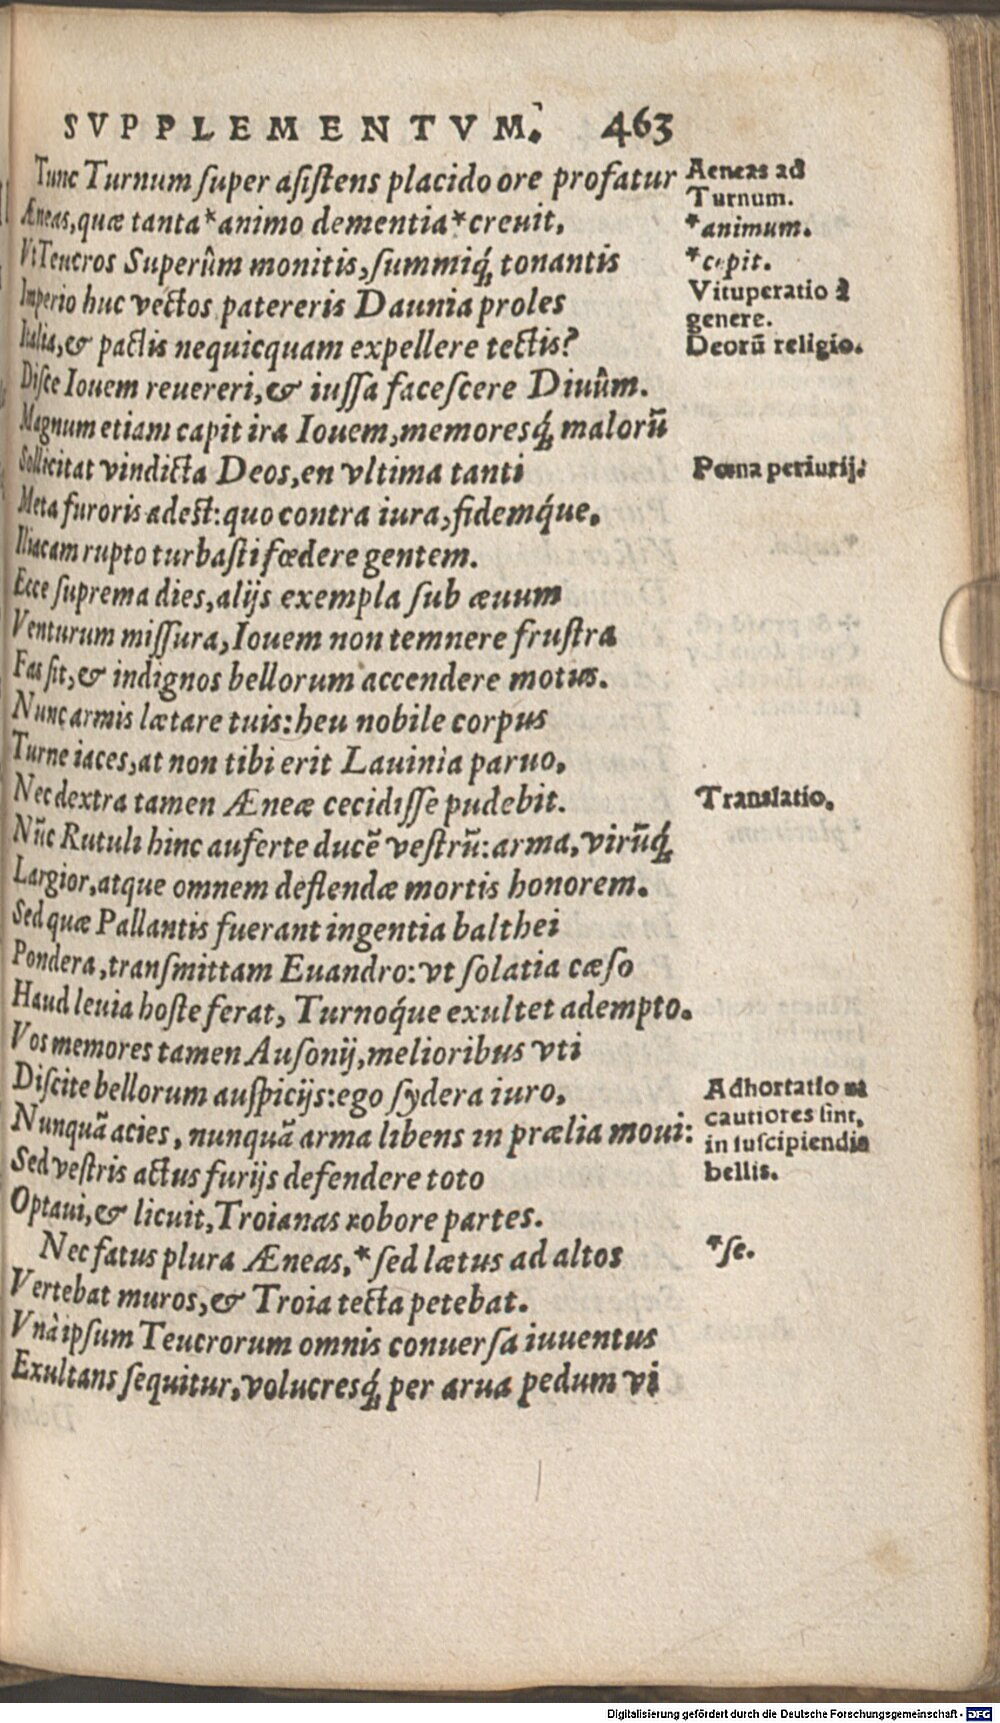 SVPPLEMENTVM. 463
Tunc Turnum super asistens placido ore profatur
Æneas, quæ tanta * animo dementia * creuit,
Vt Teucros Superûm monitis, summiq́; tonantis
Imperio huc vectos patereris Daunia proles
Italia, & pactis nequicquam expellere tectis?
Disce Iouem reuereri, & iussa facescere Diuûm.
Magnum etiam capit ira Iouem, memoresq́; malorū
Sollicitat vindicta Deos, en vltima tanti
Meta furoris adest: quo contra iura, fidemq́ue.
Iliacam rupto turbasti fœdere gentem.
Ecce suprema dies, alijs exempla sub æuum
Venturum missura, Iouem non temnere frustra
Fas sit, & indignos bellorum accendere motus.
Nunc armis lætare tuis: heu nobile corpus
Turne iaces, at non tibi erit Lauinia paruo,
Nec dextra tamen Æneæ cecidisse pudebit.
Nūc Rutuli hinc auferte ducē vestrū: arma, virūq́;
Largior, atque omnem deflendæ mortis honorem.
Sed quæ Pallantis fuerant ingentia balthei
Pondera, transmittam Euandro: vt solatia cæso
Haud leuia hoste ferat, Turnoq́ue exultet adempto.
Vos memores tamen Ausonij, melioribus vti
Discite bellorum auspicijs: ego sydera iuro,
Nunquā acies, nunquā arma libens in prælia moui:
Sed vestris actus furijs defendere toto
Optaui, & licuit, Troianas robore partes.
Nec fatus plura Æneas, * sed lætus ad altos
Vertebat muros, & Troia tecta petebat.
Vnà ipsum Teucrorum omnis conuersa iuuentus
Exultans sequitur, volucresq́; per arua pedum vi
Aeneas ad
Turnum.
* animum.
* cepit.
Vituperatio à
genere.
Deorū religio.
Pœna periurij.
Translatio.
Adhortatio ut
cautiores sint,
in suscipiendis
bellis.
* se.
Digitalisierung gefördert durch die Deutsche Forschungsgemeinschaft - DFG